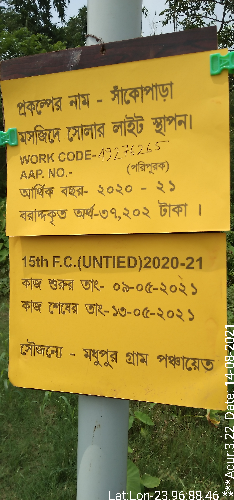 প্রকল্পের নাম - সাঁকোপাড়া
মসজিদে সোলার লাইট স্থাপন।
WORK CODE-49276265
AAP. NO.- (পরিপূরক)
আর্থিক বছর- ২০২০ - ২১
বরাদ্দকৃত অর্থ-৩৭,২০২ টাকা ।
15th F.C.(UNTIED)2020-21
কাজ শুরুর তাং- ০৯-০৫-২০২১
কাজ শেষের তাং-১৩-০৫-২০২১
সৌজন্যে - মধুপুর গ্রাম পঞ্চায়েত
Lat:Lon-23.96:88.46
***Acur:3.22, Date: 14-08-2021